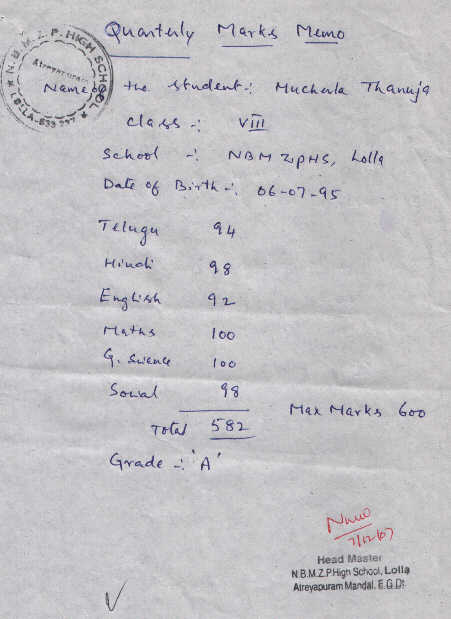 Quarterly Marks Memo
N.B.M.Z.P. HIGH SCHOOL
Atreyapuram
LOLLA-533 237
Name of the student :- Mucherla Thanuja
class -: VIII
School -: NBM ZPHS, Lolla
Date of Birth -: 06-07-95
Telugu 94
Hindi 98
English 92
Maths 100
G. Science 100
Social 98
Total 582 Max Marks 600
Grade -: 'A'
7/12/07
Head Master
N.B.M.Z.P.High School, Lolla
Atreyapuram Mandal, E.G.Dt